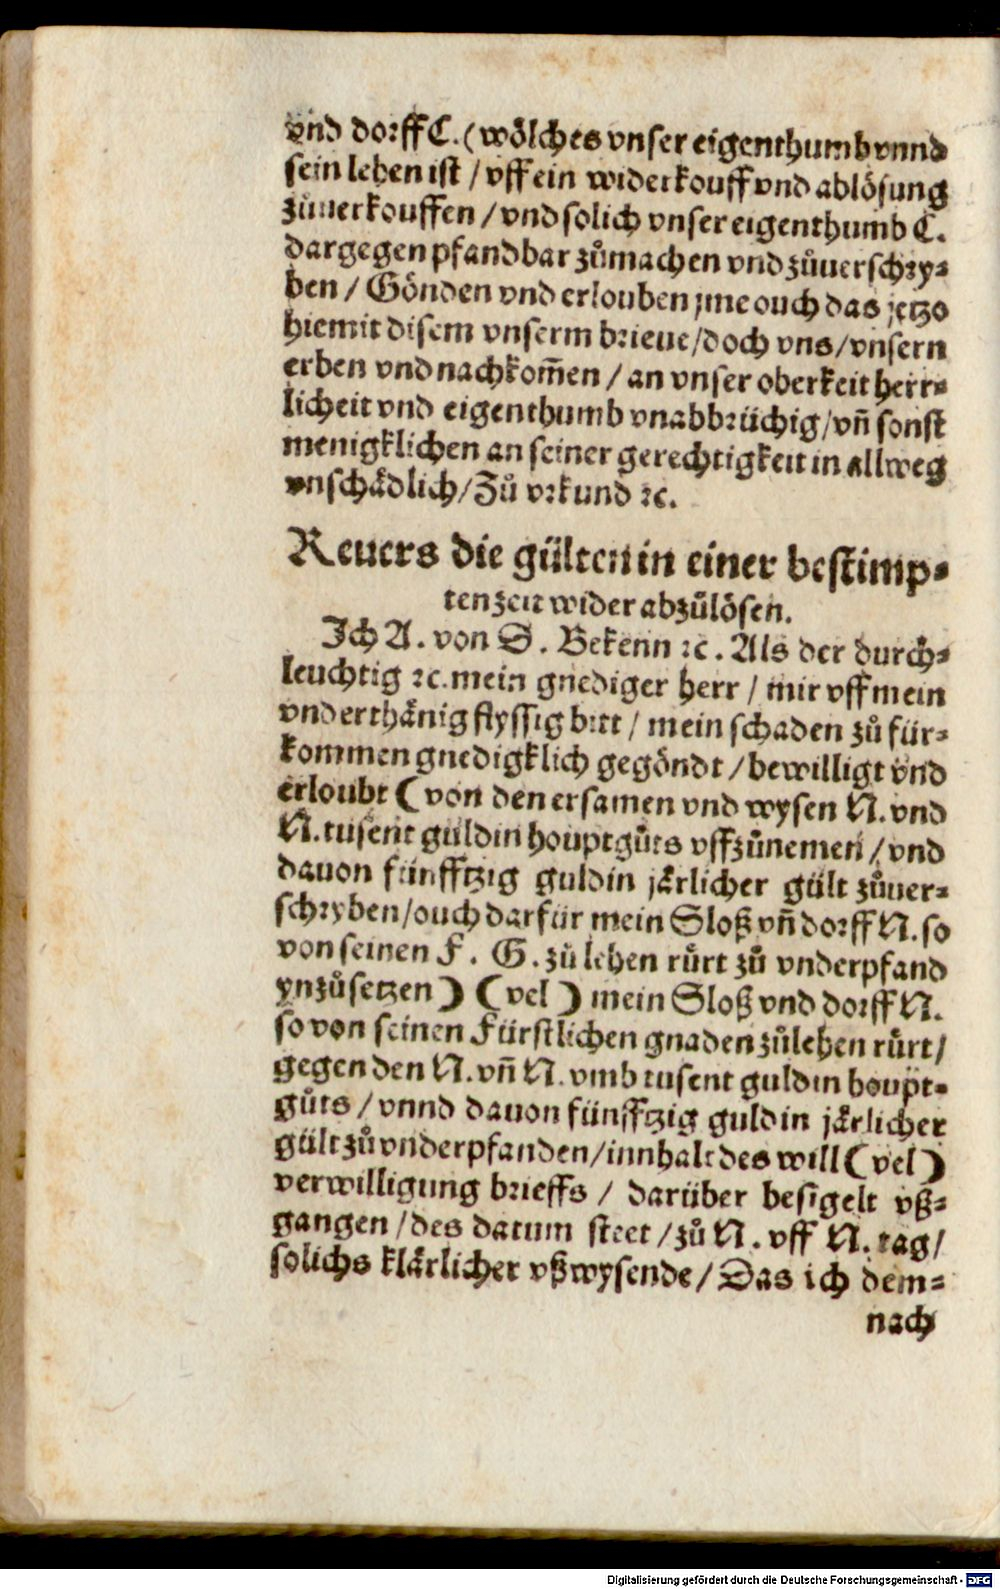 vnd dorff C. (wölches vnser eigenthumb vnnd
sein lehen ist / vff ein widerkouff vnd ablösung
zůuerkouffen / vnd solich vnser eigenthumb C.
dargegen pfandbar zůmachen vnd zůuerschry⸗
ben / Gönden vnd erlouben jme ouch das jetzo
hiemit disem vnserm brieue / doch vns / vnsern
erben vnd nachkom̃en / an vnser oberkeit herr⸗
licheit vnd eigenthumb vnabbrüchig / vñ sonst
menigklichen an seiner gerechtigkeit in allweg
vnschådlich / Zů vrkund ⁊c.
Reuers die gülten in einer bestimp⸗
ten zeit wider abzůlösen.
Ich A. von S. Bekenn ⁊c. Als der durch⸗
leuchtig ⁊c. mein gnediger herr / mir vff mein
vnderthånig flyssig bitt / mein schaden zů für⸗
kommen gnedigklich gegöndt / bewilligt vnd
erloubt ( von den ersamen vnd wysen N. vnd
N. tusent guldin houptgůts vffzůnemen / vnd
dauon fünfftzig guldin jårlicher gült zůuer⸗
schryben / ouch darfür mein Sloß vñ dorff N. so
von seinen F. G. zů lehen růrt zů vnderpfand
ynzůsetzen ) ( vel ) mein Sloß vnd dorff N.
so von seinen Fürstlichen gnaden zůlehen růrt /
gegen den N. vñ N. vmb tusent guldin houpt⸗
gůts / vnnd dauon fünfftzig guldin jårlicher
gült zů vnderpfanden / innhalt des will ( vel )
verwilligung brieffs / darüber besigelt vß⸗
gangen / des datum steet / zů N. vff N. tag /
solichs klårlicher vßwysende / Das ich dem⸗
nach
Digitalisierung gefördert durch die Deutsche Forschungsgemeinschaft - DFG